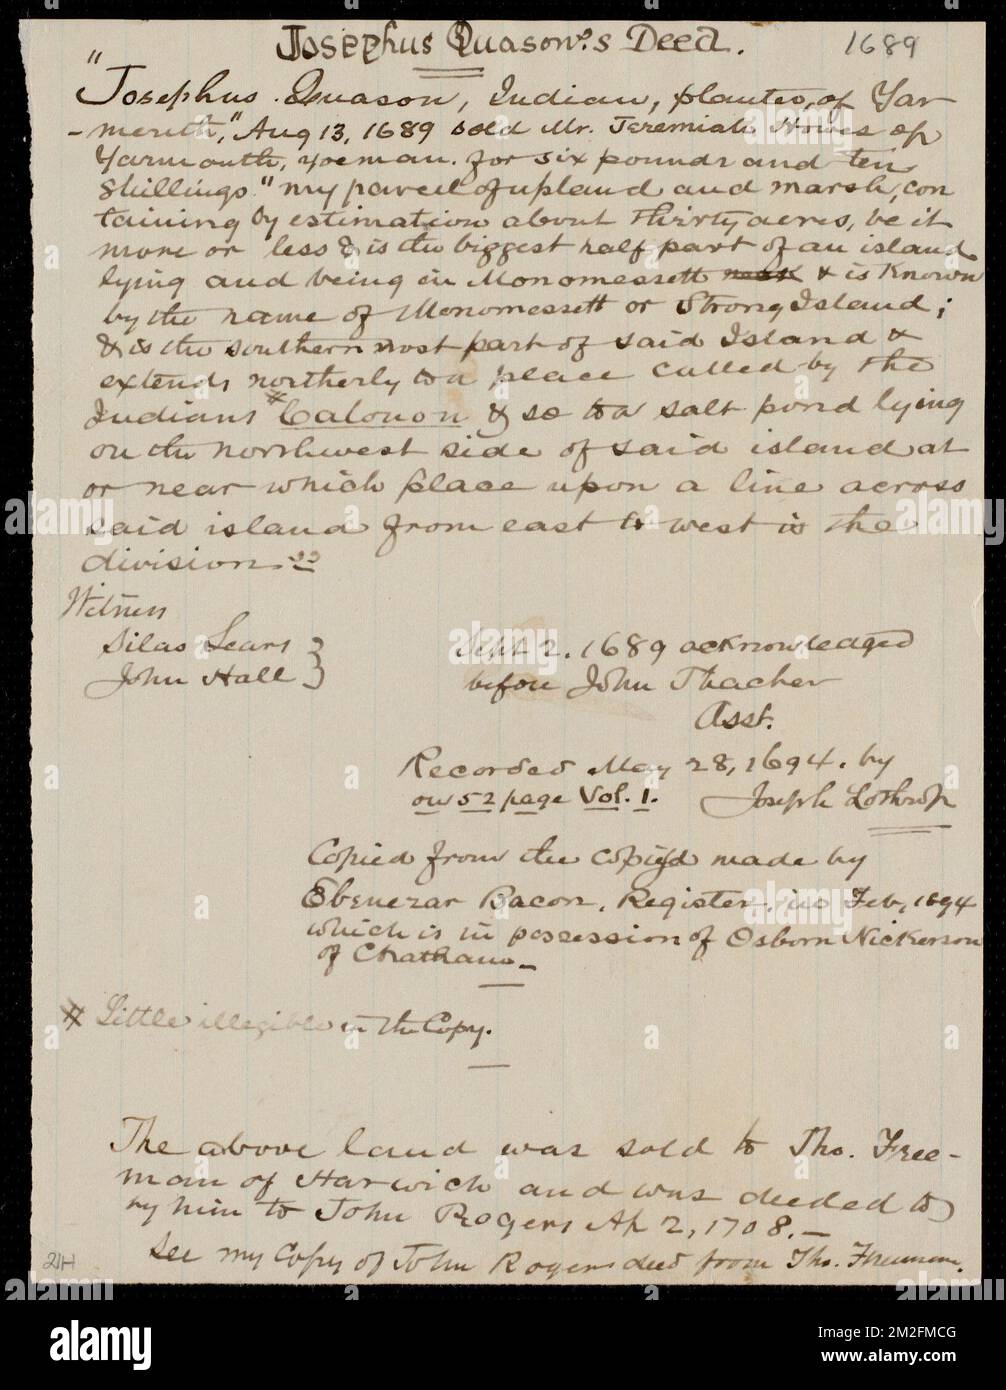 Josephus Quason's Deed. 1689
"Josephus Quason, Indian, planter, of Yar
-mouth," Aug 13, 1689 sold Mr. Jeremiah Howes of
Yarmouth, yoeman. for six pounds and ten
shillings "my parcel of upland and marsh, con
taining by estimation about thirty acres, be it
more or less & is the biggest half part of an island
lying and being in Monomessett neck & is known
by the name of Monomessett or Strong Island;
& is the southern most part of said Island &
extends northerly to a place called by the
Indians * Calouon & so to a salt pond lying
on the northwest side of said island at
or near which place upon a line across
said island from east to west is the
division."
Witness
Silas Sears }
John Hall }
Sept 2. 1689 acknowledged
before John Thacher
Asst.
Recorded May 28, 1694. by
on 52 page Vol. 1. Joseph Lothrop
Copied from the copy made by
Ebenezar Bacon, Register, in Feb, 1894
which is in possession of Osborn Nickerson
of Chatham.—
* Little illegible in the Copy.
The above land was sold to Tho. Free-
man of Harwich and was deeded to
by him to John Rogers Ap 2, 1708.—
See my Copy of John Rogers deed from Tho. Freeman.
2H
alamy
Image ID: 2M2FMCG
www.alamy.com